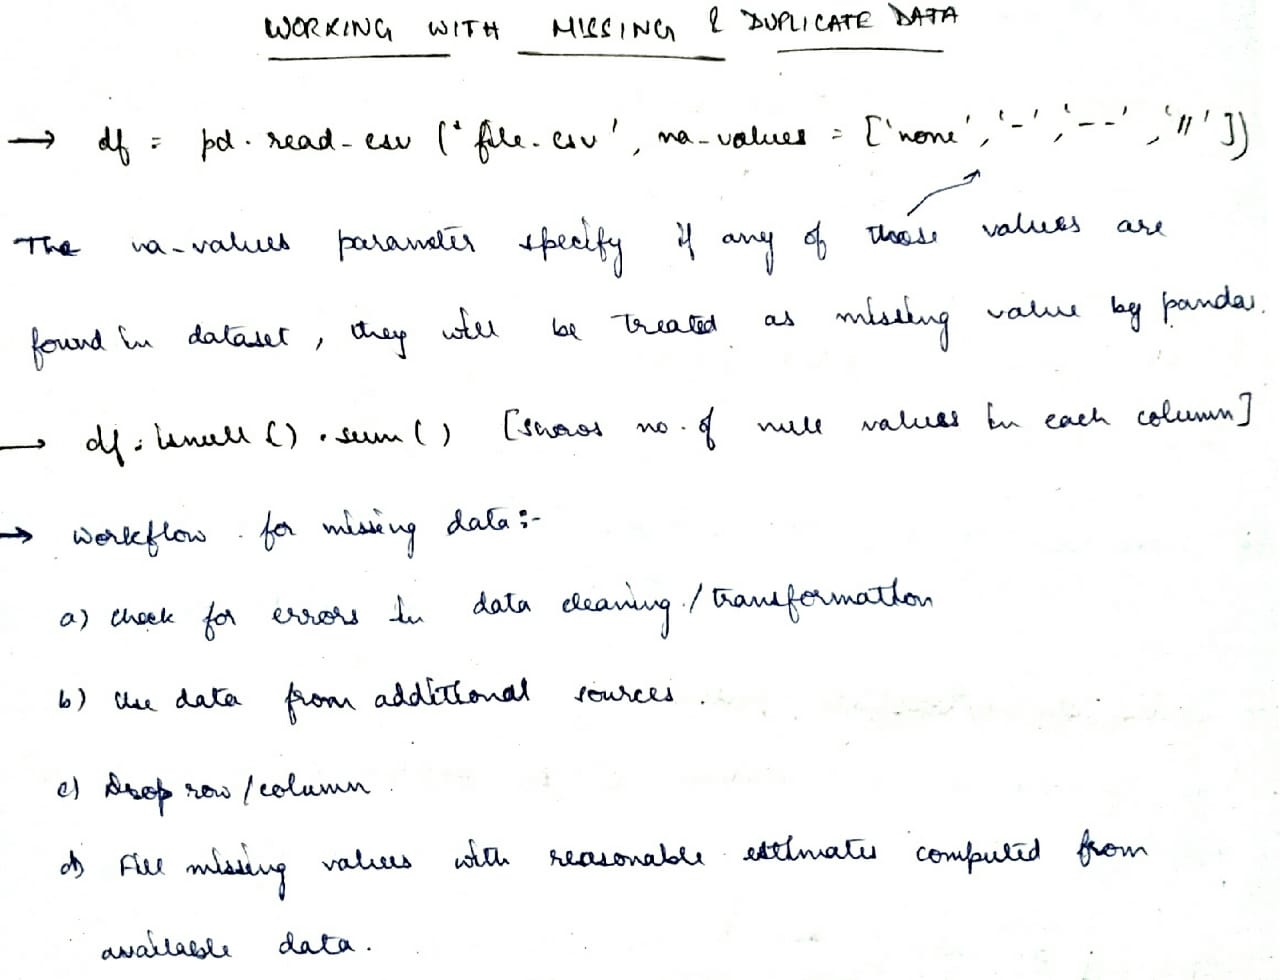 WORKING WITH MISSING & DUPLICATE DATA
→ df = pd.read_csv ('file.csv', na_values = ['none', '-', '--', '//'])
The na-values parameter specify if any of those values are
found in dataset, they will be treated as missing value by pandas.
→ df.isnull().sum() [shows no. of null values in each column]
→ Workflow for missing data:-
a) Check for errors in data cleaning / transformation
b) Use data from additional sources.
c) Drop row/column.
d) Fill missing values with reasonable estimates computed from
available data.